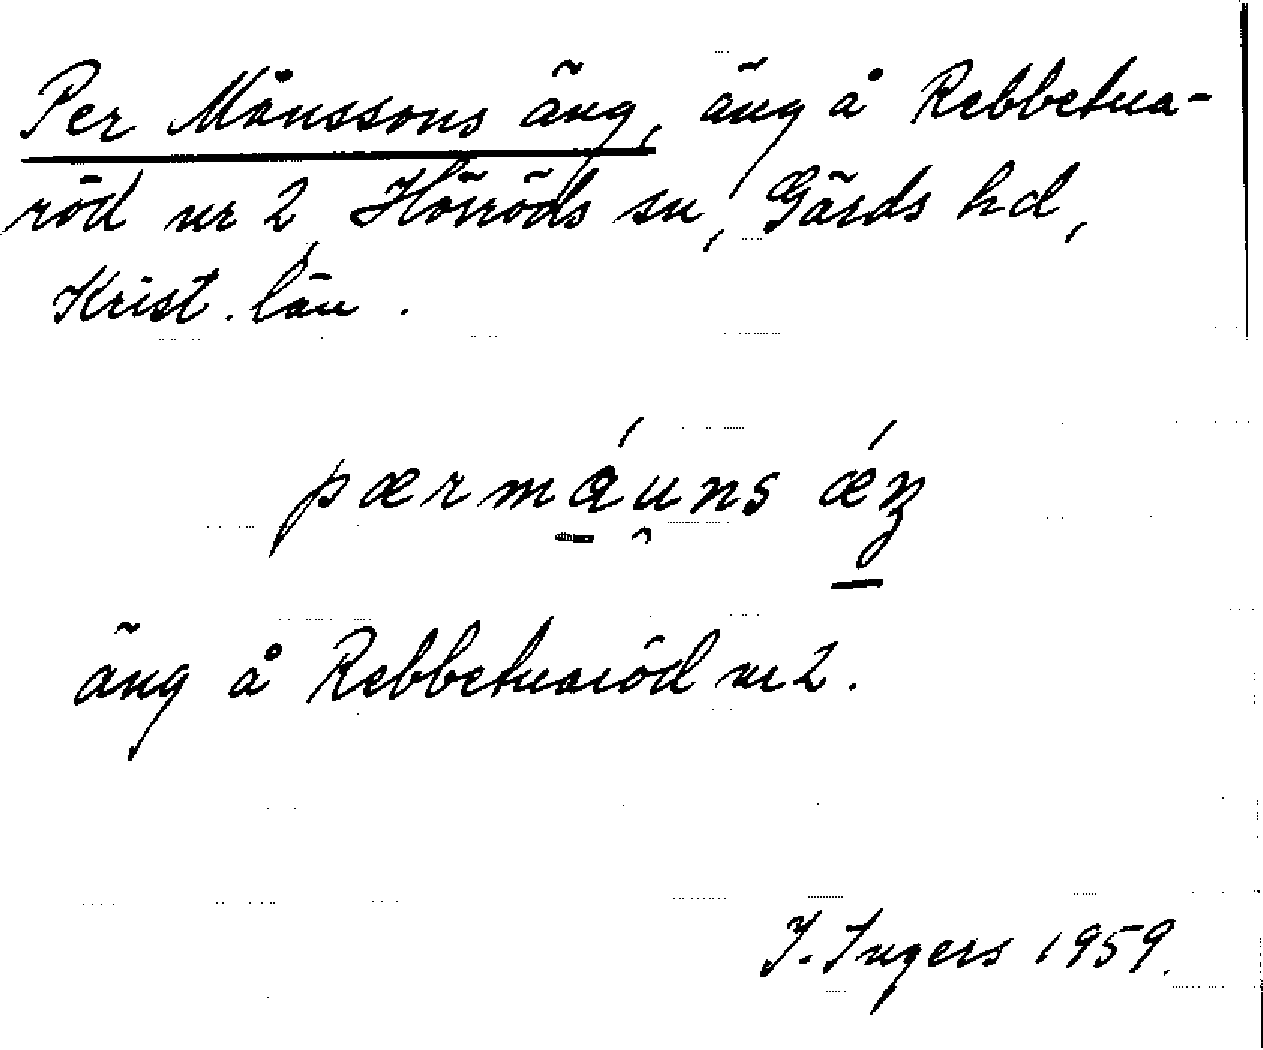 Per Månssons äng, äng å Rebbetua-
röd nr 2, Hörröds sn, Gärds hd,
Krist. län.
pærmáu̯ns ǽŋ
äng å Rebbetuaröd nr 2.
I. Ingers 1959.